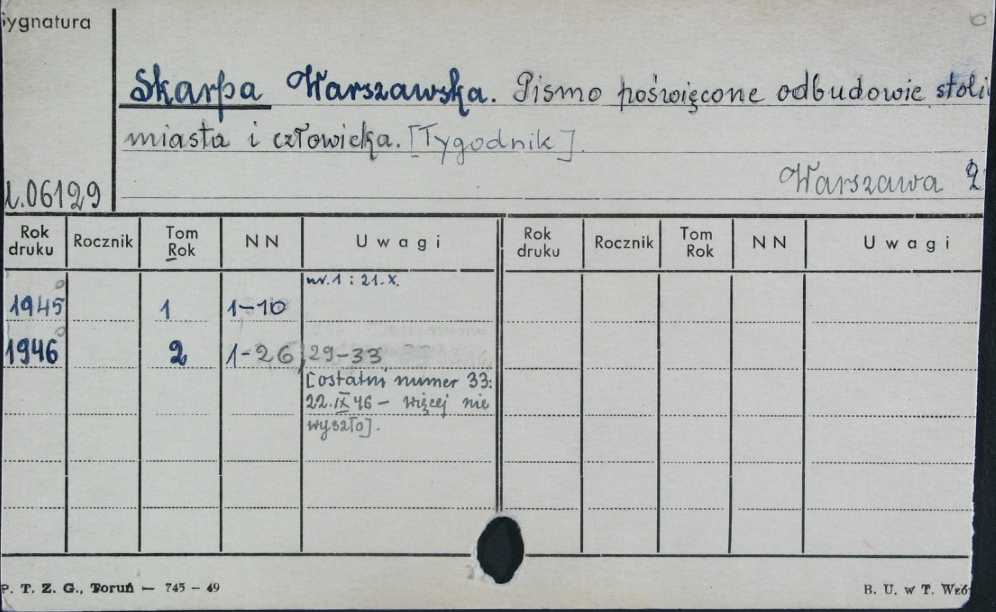 Sygnatura
Skarpa Warszawska. Pismo poświęcone odbudowie stoli
miasta i człowieka. [Tygodnik].
Warszawa 2
06129
Rok druku Rocznik Tom Rok NN Uwagi Rok druku Rocznik Tom Rok NN Uwagi
nr. 1 : 21. X.
1945 1 1-10
1946 2 1-26, 29-33
[ostatni numer 33:
22.IX 46 - więcej nie
wyszło].
P. T. Z. G., Toruń — 745 - 49
B. U. w T. Wzó